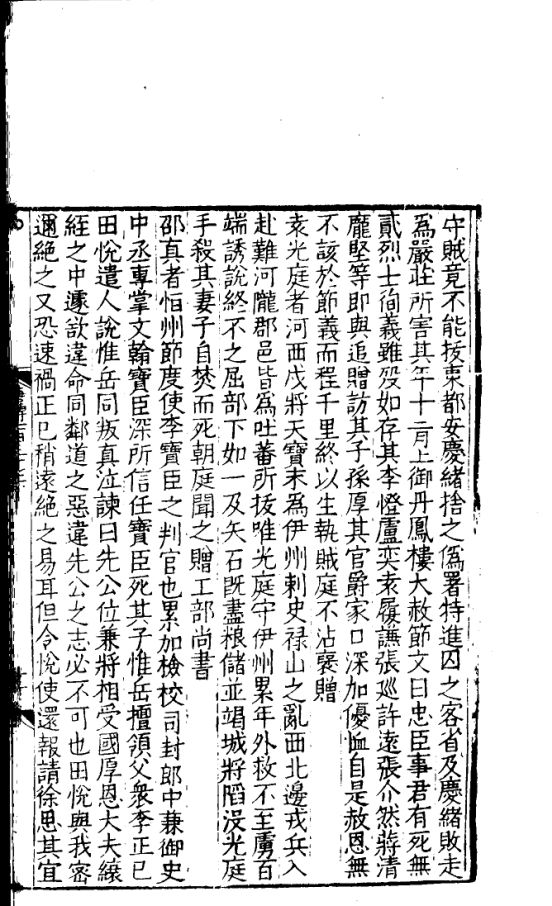 守賊竟不能拔東都安慶緒捨之僞署特進囚之客省及慶緒敗走
爲嚴莊所害其年十二月上御丹鳳樓大赦節文曰忠臣事君有死無
貳烈士徇義雖殁如存其李憕盧奕袁履謙張巡許遠張介然蔣清
龐堅等即與追贈訪其子孫厚其官爵家口深加優恤自是赦恩無
不該於節義而程千里終以生執賊庭不沾褒贈
袁光庭者河西戍將天寶末爲伊州刺史禄山之亂西北邊戎兵入
赴難河隴郡邑皆爲吐蕃所拔唯光庭守伊州累年外救不至虜百
端誘說終不之屈部下如一及矢石既盡粮儲並竭城將陷没光庭
手殺其妻子自焚而死朝庭聞之贈工部尚書
邵真者恒州節度使李寶臣之判官也累加檢校司封郎中兼御史
中丞專掌文翰寶臣深所信任寶臣死其子惟岳擅領父衆李正已
田悅遣人說惟岳同叛真泣諫曰先公位兼將相受國厚恩大夫縗
絰之中遽欲違命同鄰道之惡違先公之志必不可也田悅與我密
邇絶之又恐速禍正已稍遠絶之易耳但令悅使還報請徐思其宜